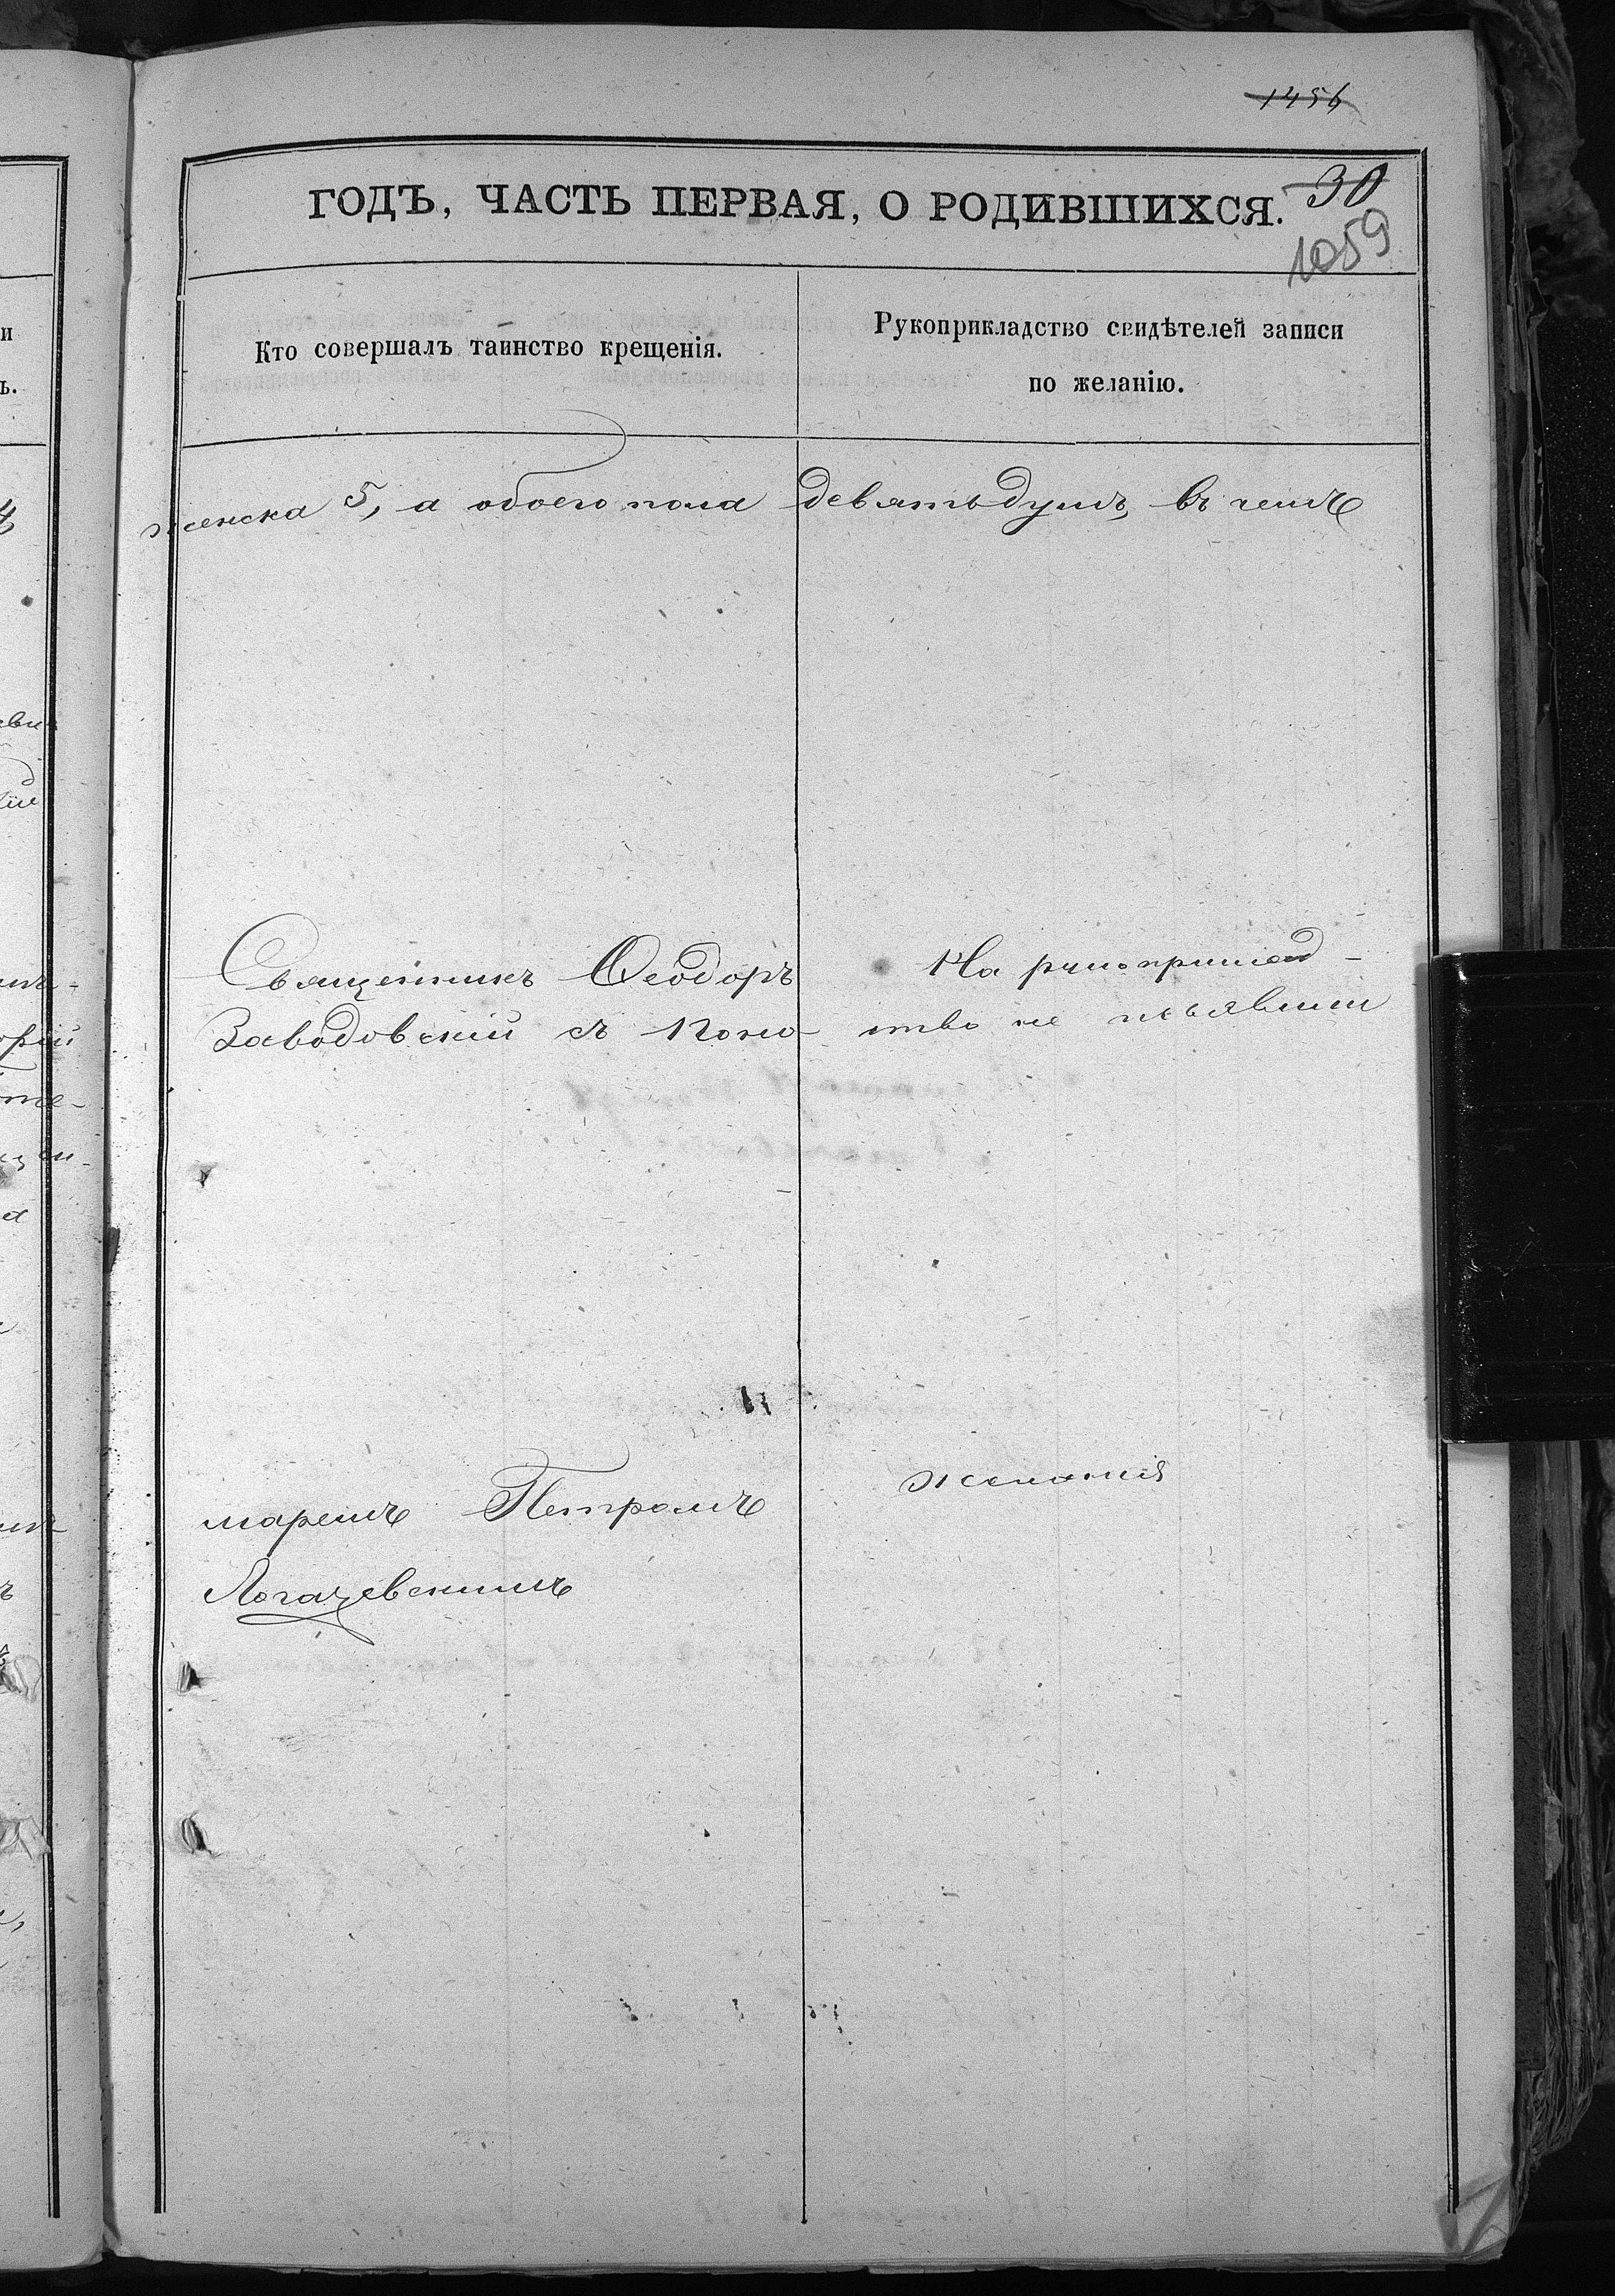 1456
ГОДЪ, ЧАСТЬ ПЕРВАЯ, О РОДИВШИХСЯ.
30
1059
Кто совершалъ таинство крещенія.
Рукоприкладство свидѣтелей записи
по желанію.
женска 5, а обоего пола девять душъ, въ чемъ
Священникъ Ѳеодоръ
Заводовскій съ поно-
маремъ Петромъ
Логачевскимъ
На рукоприклад-
ство не изъявили
желанія